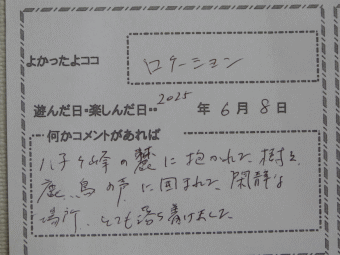 よかったよココ ロケーション
遊んだ日・楽しんだ日・・2025年6月8日
何かコメントがあれば
八子ヶ峰の麓に抱かれた樹々、
鹿、鳥の声に囲まれた閑静な
場所、とても落ち着けました